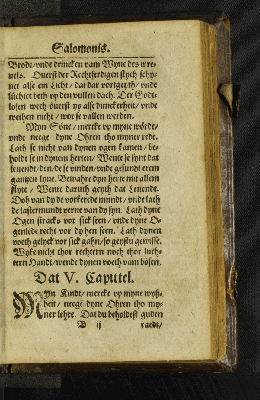 Salomonis.
Brodt/ vnde drincken vam Wyne des wre-
uels. Ouerst der Rechtferdigen stych schy-
net alse ein Licht/ dat dar vortgeyth/ vnde
lüchtet beth vp den vullen dach. Der Godt-
losen wech öuerst ys alse dunckerheit/ vnde
wethen nicht/ wor se vallen werden.
Myn Söne/ mercke vp myne wörde/
vnde neege dyne Ohren tho myner rede.
Lath se nicht van dynen ogen kamen/ be-
holdt se in dynem herten/ Wente se synt dat
leuendt/ den/ de se vinden/ vnde gesundt erem
gantzen lyue. Beware dyn herte mit allem
flyte/ Wente daruth geyth dat Leuendt.
Doh van dy de vorkerede mundt/ vnde lath
de lastermundt verne van dy syn. Lath dyne
Ogen stracks vor sick seen/ vnde dyne O-
genlede recht vor dy hen seen. Lath dynen
voeth gelyck vor sick gahn/ so geystu gewisse.
Wyke nicht thor rechtern noch thor luch-
tern Handt/ wende dynen voeth vam bösen.
Dat V. Capittel.
MYn Kindt/ mercke vp myne wyß-
heit/ neege dyne Ohren tho my-
ner lehre. Dat du beholdest guden
B ij
raedt/